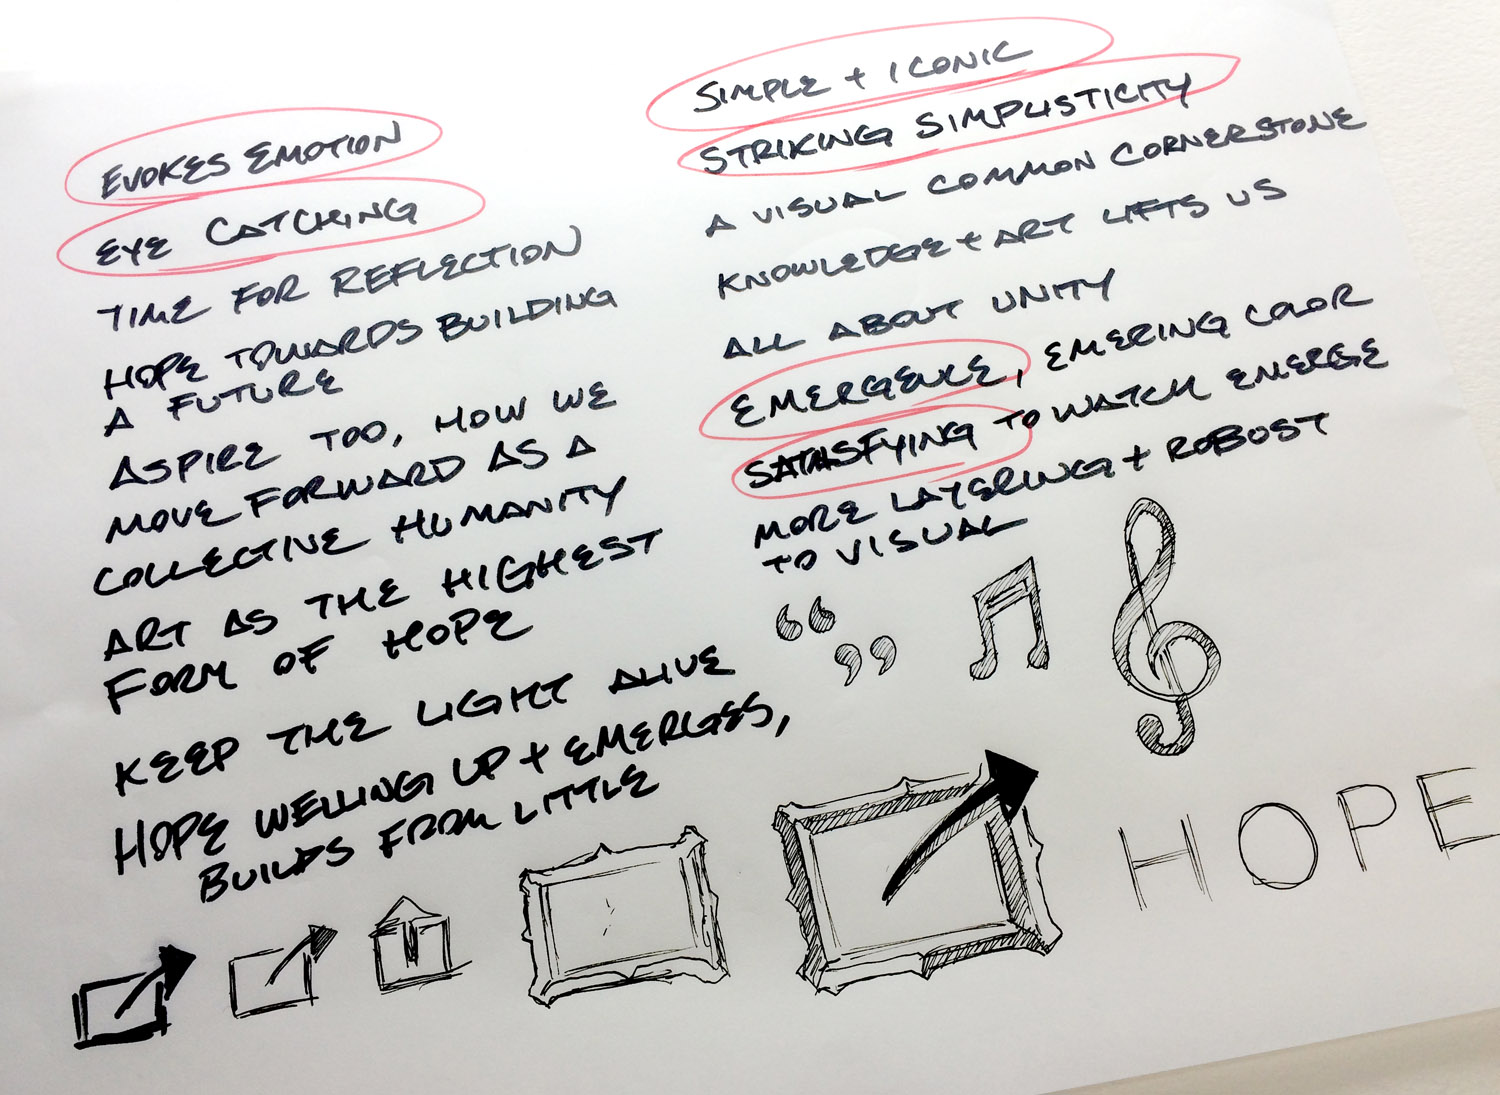 EVOKES EMOTION
EYE CATCHING
TIME FOR REFLECTION
HOPE TOWARDS BUILDING
A FUTURE
ASPIRE TOO, HOW WE
MOVE FORWARD AS A
COLLECTIVE HUMANITY
ART AS THE HIGHEST
FORM OF HOPE
KEEP THE LIGHT ALIVE
HOPE WELLING UP + EMERGES,
BUILDS FROM LITTLE
SIMPLE + ICONIC
STRIKING SIMPLISTICITY
A VISUAL COMMON CORNERSTONE
KNOWLEDGE + ART LIFTS US
ALL ABOUT UNITY
EMERGENCE, EMERING COLOR
SATISFYING TO WATCH EMERGE
MORE LAYERING + ROBUST
TO VISUAL
“ ”
HOPE